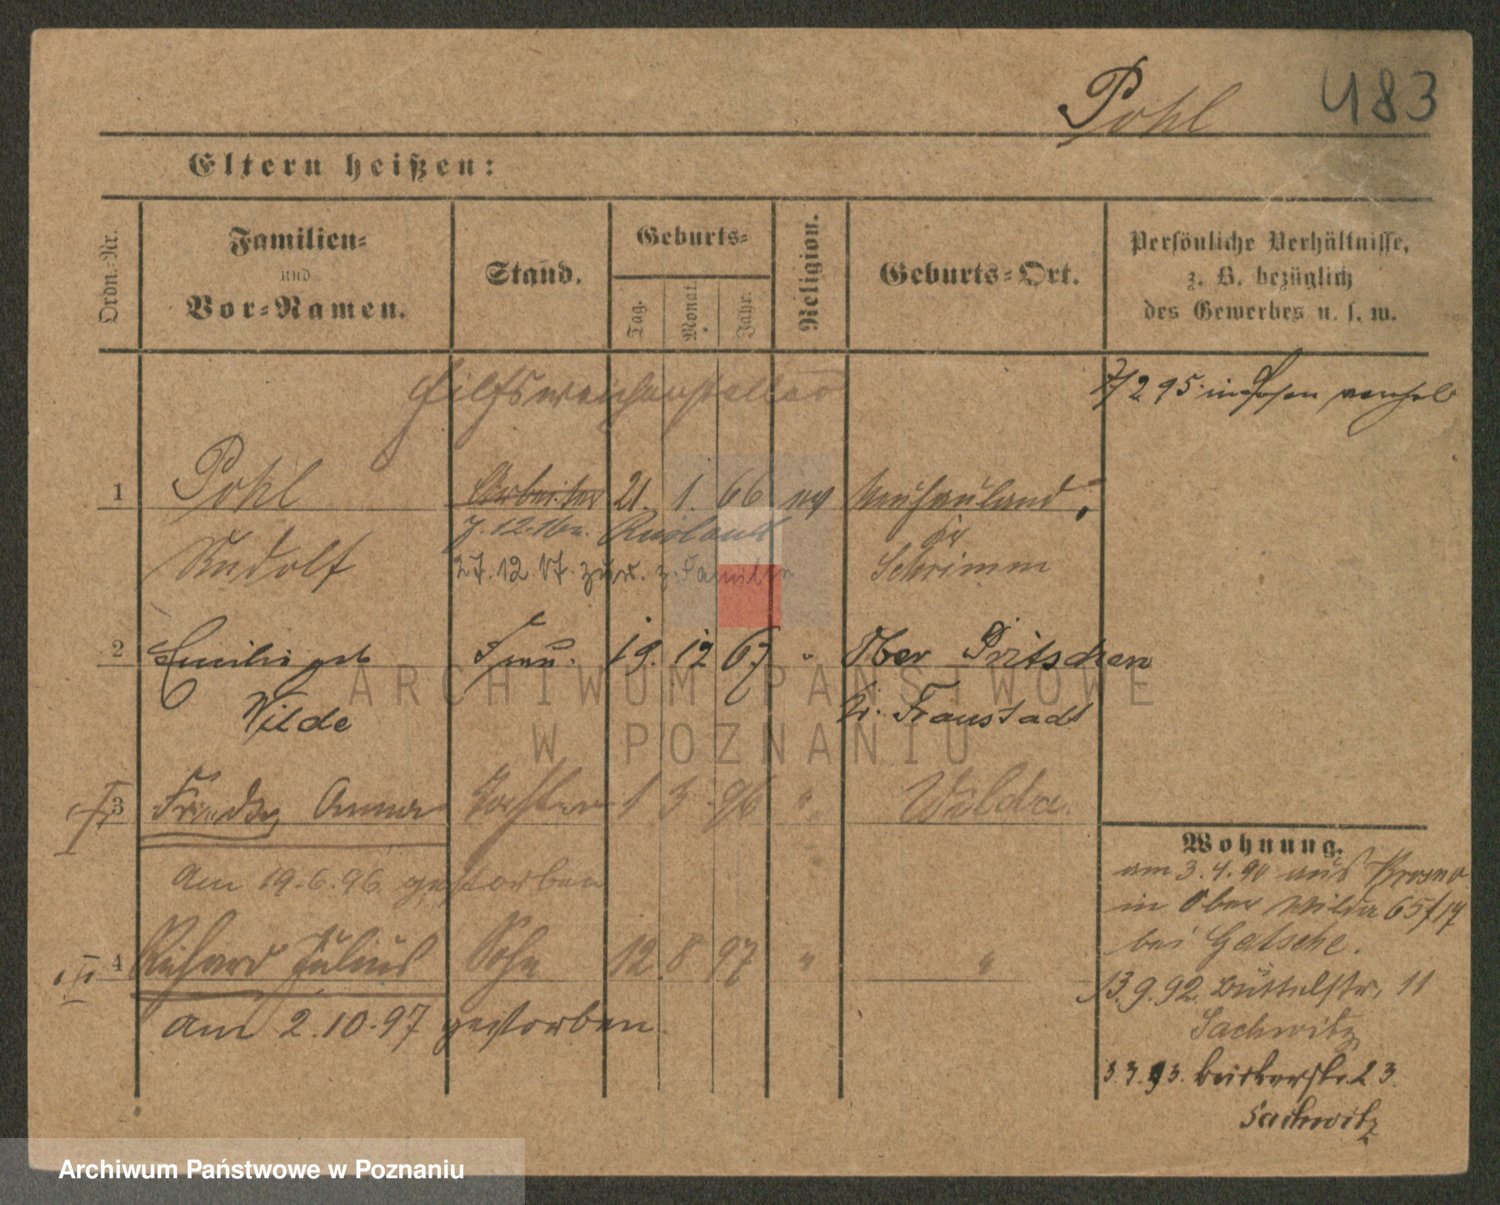 Pohl 483
Eltern heißen:
Ordn.-Nr.
Familien-
und
Vor-Namen.
Stand.
Geburts-
Tag.
Monat.
Jahr.
Religion.
Geburts-Ort.
Persönliche Verhältnisse,
z. B. bezüglich
des Gewerbes u. s. w.
Hilfsweichensteller
7/2 95 in Posen
1 Pohl Arbeiter 21. 1. 66 ev
Rudolf
27.12.17. zur. z. Familie
Kr
Schrimm
2 Emilie geb Frau. 19. 12 67 " Ober Pritschen
Wilde
Kr. Fraustadt
3 Anna Tochter 1 3 96 " Wilda.
am 19.6.96 gestorben
4 Richard Julius Sohn 12. 8 97 " "
am 2.10.97 gestorben.
Wohnung.
am 3.4.90 aus
in Ober Wilda 65/17
bei
13.9.92. 11
Sachwitz
23
Sachwitz
ARCHIWUM PAŃSTWOWE
W POZNANIU
Archiwum Państwowe w Poznaniu